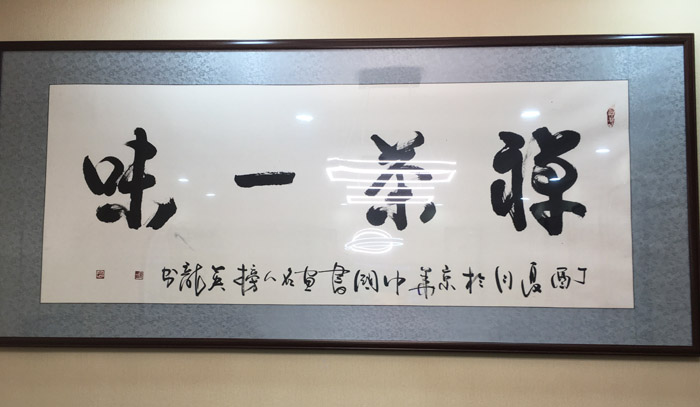 禅茶一味
丁酉夏月於京華中國書画名人榜英龍书